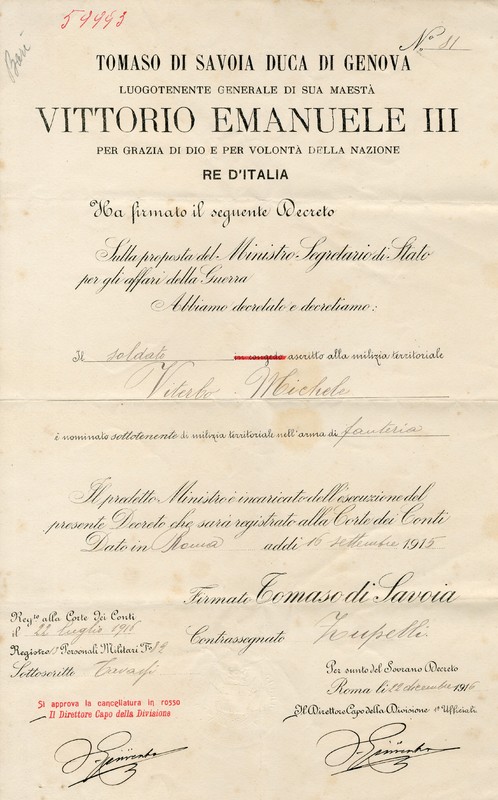 59993
Bari
No. 81
TOMASO DI SAVOIA DUCA DI GENOVA
LUOGOTENENTE GENERALE DI SUA MAESTÀ
VITTORIO EMANUELE III
PER GRAZIA DI DIO E PER VOLONTÀ DELLA NAZIONE
RE D'ITALIA
Ha firmato il seguente Decreto
Sulla proposta del Ministro Segretario di Stato
per gli affari della Guerra
Abbiamo decretato e decretiamo:
Il soldato in congedo ascritto alla milizia territoriale
Viterbo Michele
è nominato sottotenente di milizia territoriale nell'arma di fanteria
Il predetto Ministro è incaricato dell'esecuzione del
presente Decreto che sarà registrato alla Corte dei Conti
Dato in Roma addì 16 settembre 1915
Firmato Tomaso di Savoia
Contrassegnato Zupelli
Regto alla Corte dei Conti
il 22 luglio 1916
Registro Personali Militari
Sottoscritto
Si approva la cancellatura in rosso
Il Direttore Capo della Divisione
Per sunto del Sovrano Decreto
Roma li 22 dicembre 1916
Il Direttore Capo della Divisione Uffiziali